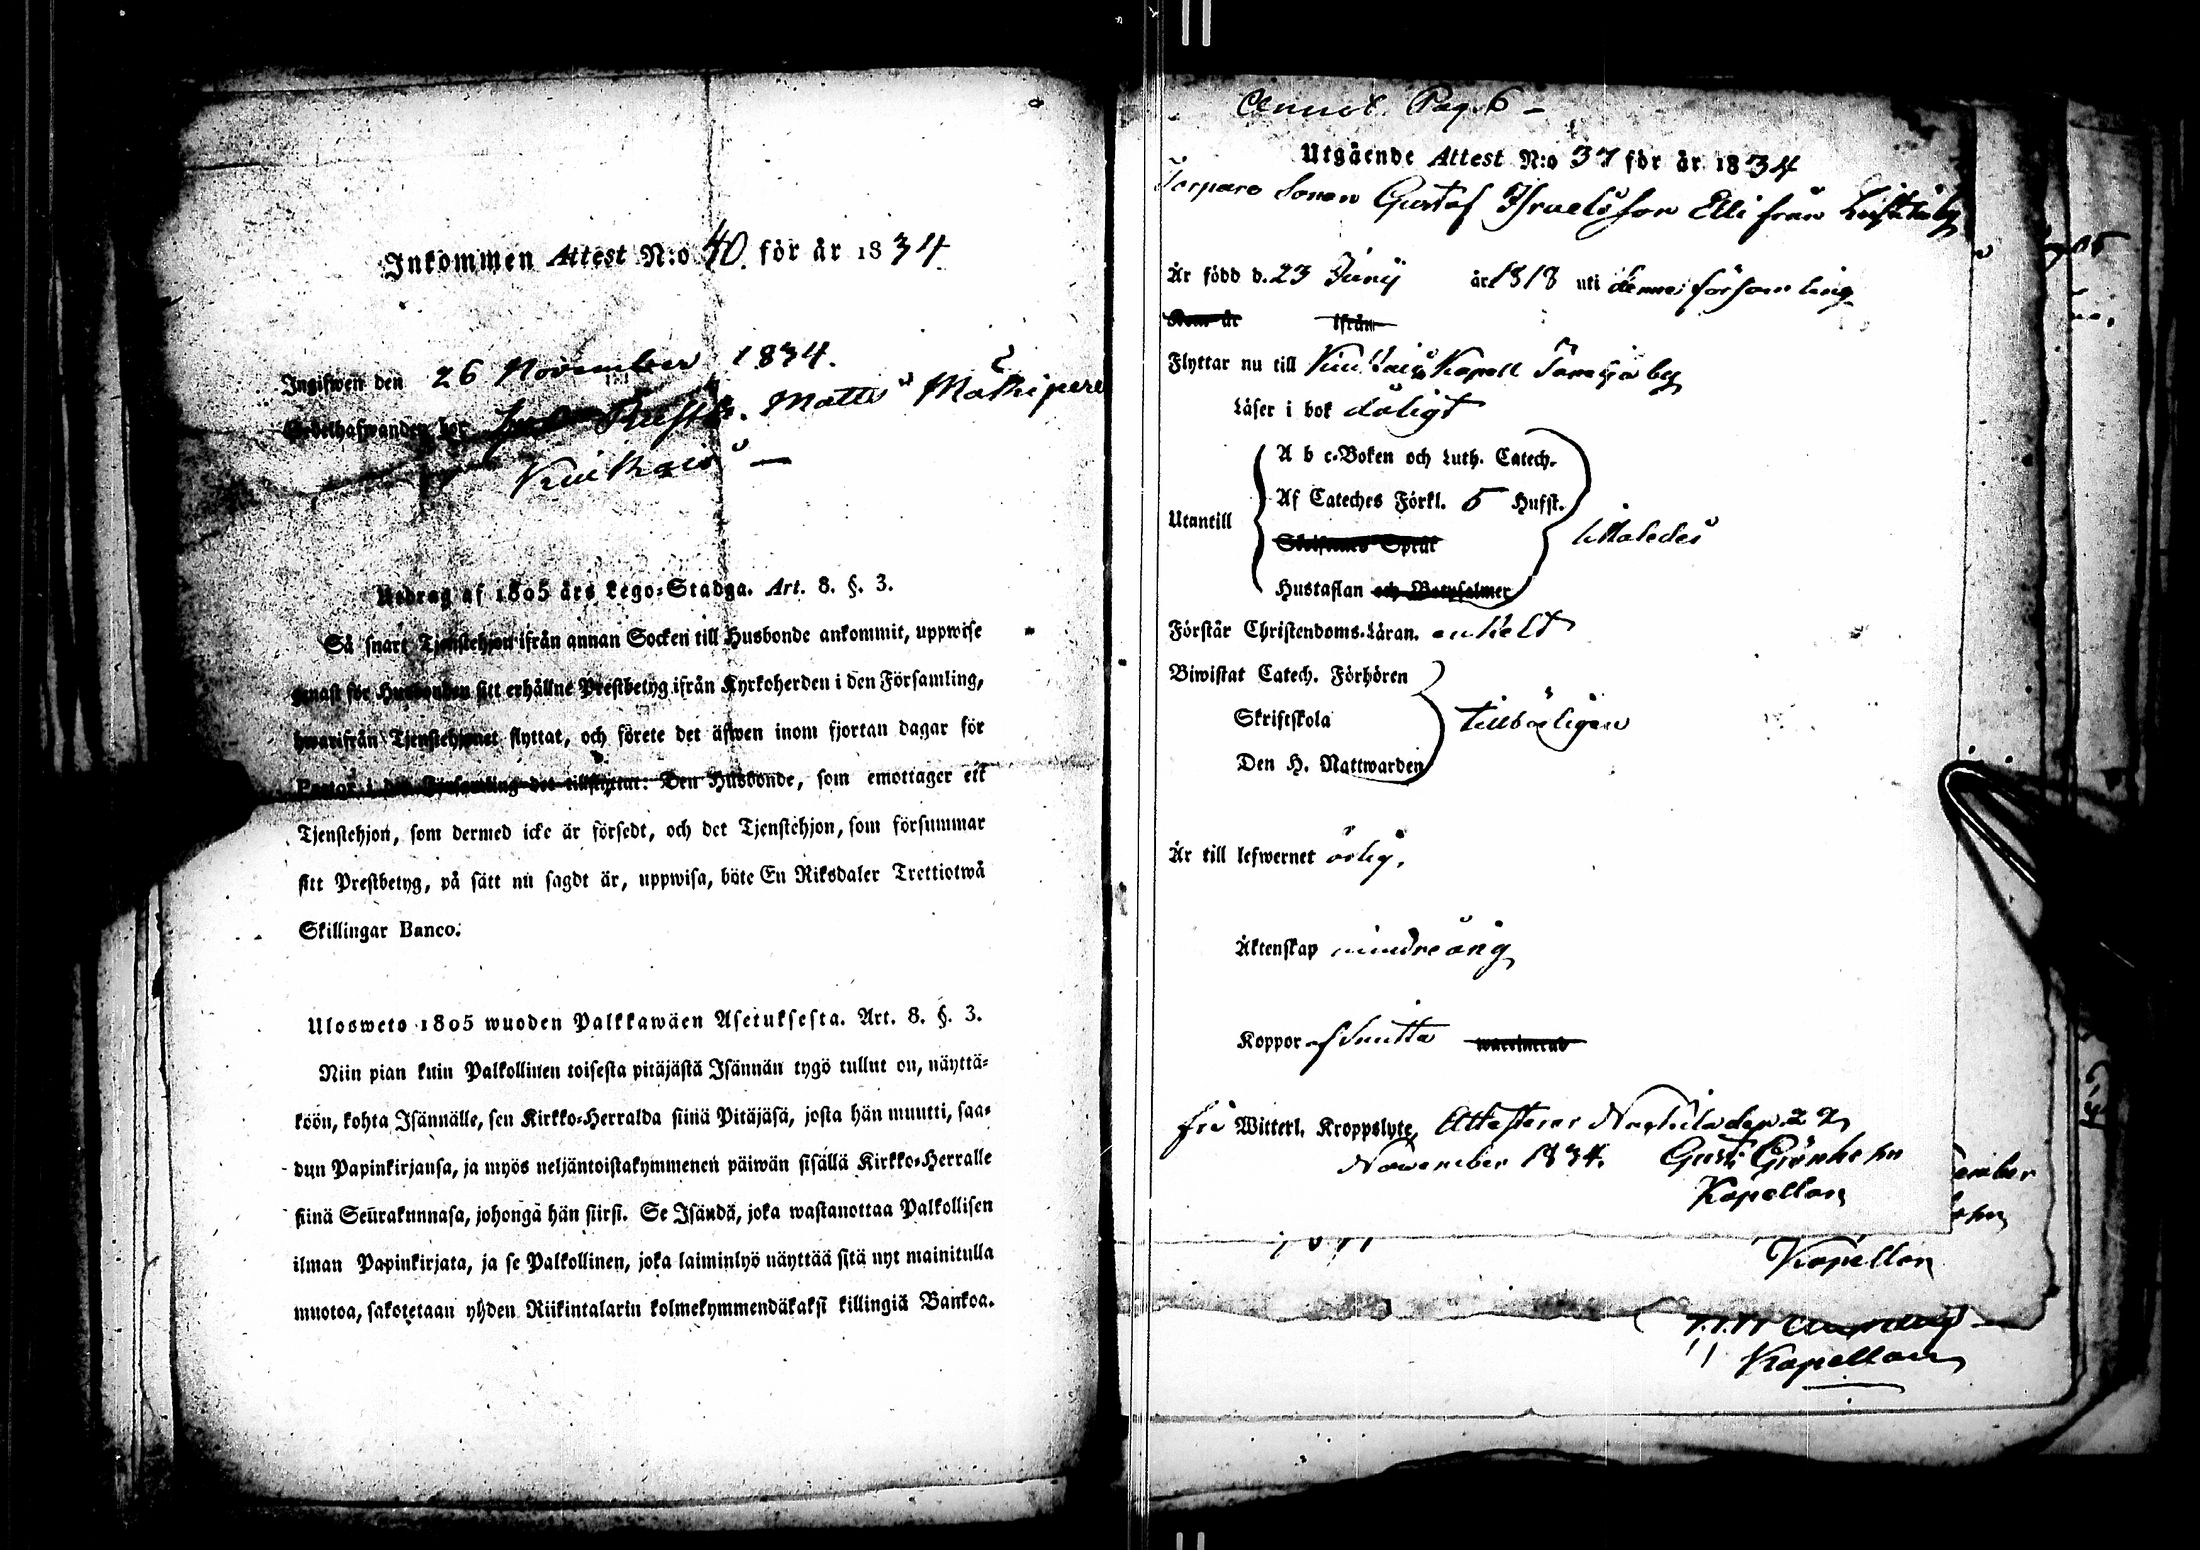 Inkommen Attest N:o 40. för år 1834.
Ingifwen den 26 November 1834.
Matts Matkipere
Kiukais —
Utdrag af 1805 års Lego-Stadga. Art. 8. §. 3.
Så snart Tjenstehjon ifrån annan Socken till Husbonde ankommit, uppwise
genast för Husbonden sitt erhållne Prestbetyg ifrån Kyrkoherden i den Församling,
hwarifrån Tjenstehjonet flyttat, och förete det äfwen inom fjortan dagar för
Pastor i den Församling det tillflyttat: Den Husbonde, som emottager ett
Tjenstehjon, som dermed icke är försedt, och det Tjenstehjon, som försummar
sitt Prestbetyg, på sätt nu sagdt är, uppwisa, böte En Riksdaler Trettiotwå
Skillingar Banco.
Ulosweto 1805 wuoden Palkkawäen Asetuksesta. Art. 8. §. 3.
Niin pian kuin Palkollinen toisesta pitäjästä Isännän tygö tullut on, näyttä-
köön, kohta Isännälle, sen Kirkko-Herralda siinä Pitäjäsä, josta hän muutti, saa-
dun Papinkirjansa, ja myös neljäntoistakymmenen päiwän sisällä Kirkko-Herralle
siinä Seurakunnasa, johonga hän siirsi. Se Isändä, joka wastanottaa Palkollisen
ilman Papinkirjata, ja se Palkollinen, joka laiminlyö näyttää sitä nyt mainitulla
muotoa, sakotetaan yhden Riikintalarin kolmekymmendäkaksi killingiä Bankoa.
Annot. Pag. 6 –
Utgående Attest N:o 37 för år 1834
Torpare Sonen Gustaf Israelsson Elli från
Är född d. 23 Junij år 1818 uti denna församling
Kom år ifrån
Flyttar nu till Kiukais Kapell by
Läser i bok dåligt
A b c-Boken och Luth. Catech.
Af Cateches Förkl. 5 Hufst.
Utantill likaledes
Skriftenes Språk
Hustaflan och Botpsalmer
Förstår Christendoms-Läran. enkelt
Biwistat Catech. Förhören
Skriftskola tillbörligen
Den H. Nattwarden
Är till lefwernet ärlig.
Äktenskap mindreårig
Koppor afslutta waccinerad
fri Witterl. Kroppslyte, Attesterar Nackila den 22
November 1834. Gust: Grönholm
Kapellan
ember
Kapellan
Kapellan